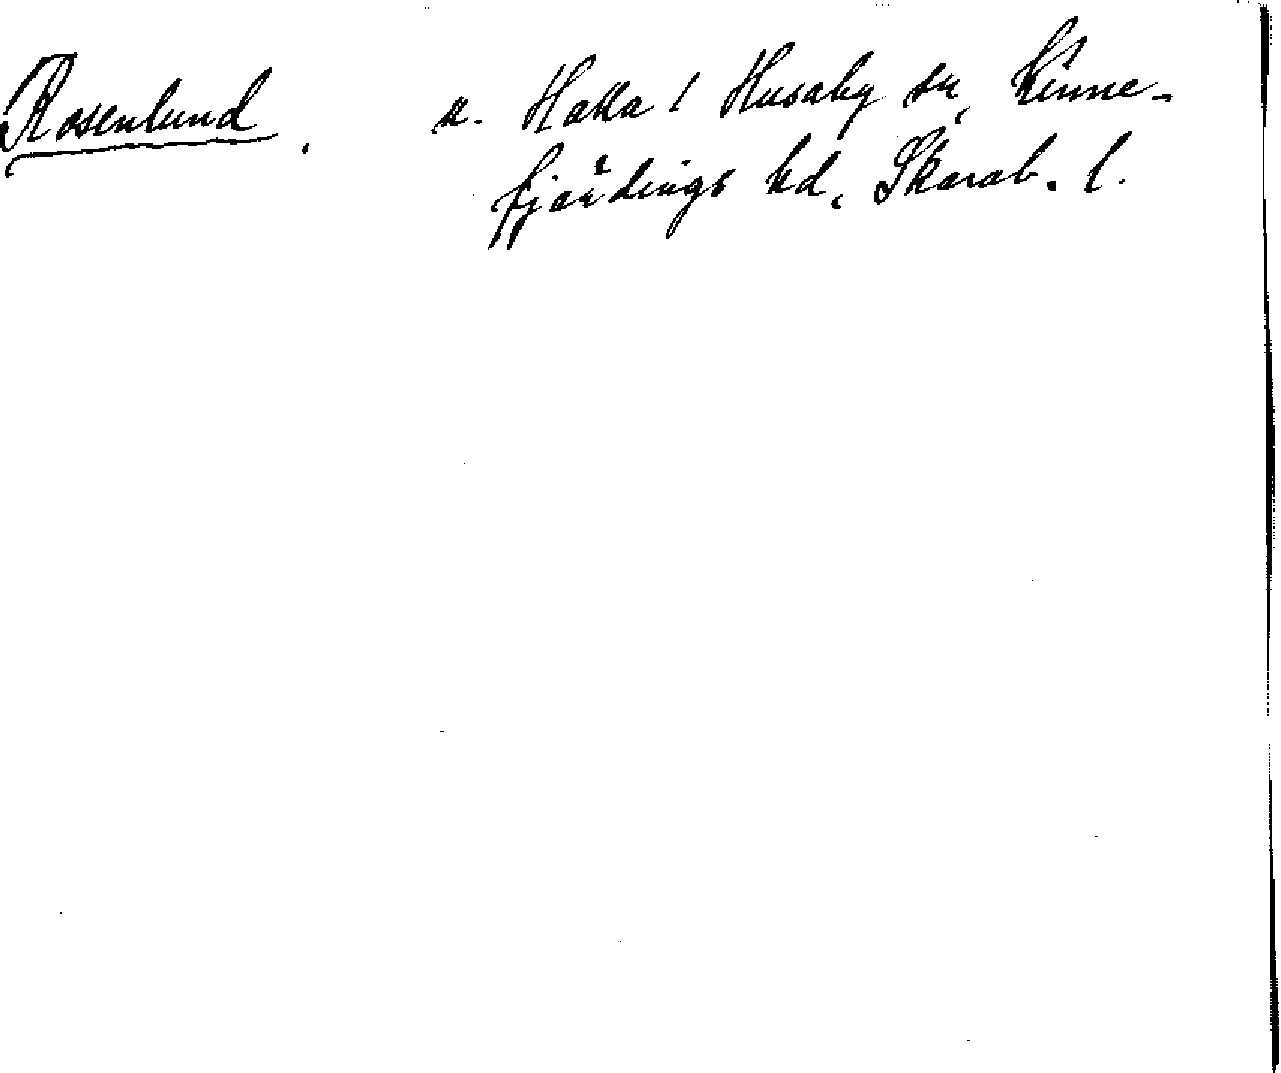 Rosenlund. u. Halla 1 Husaby sn, Kinne-
fjärdings hd, Skarab. l.